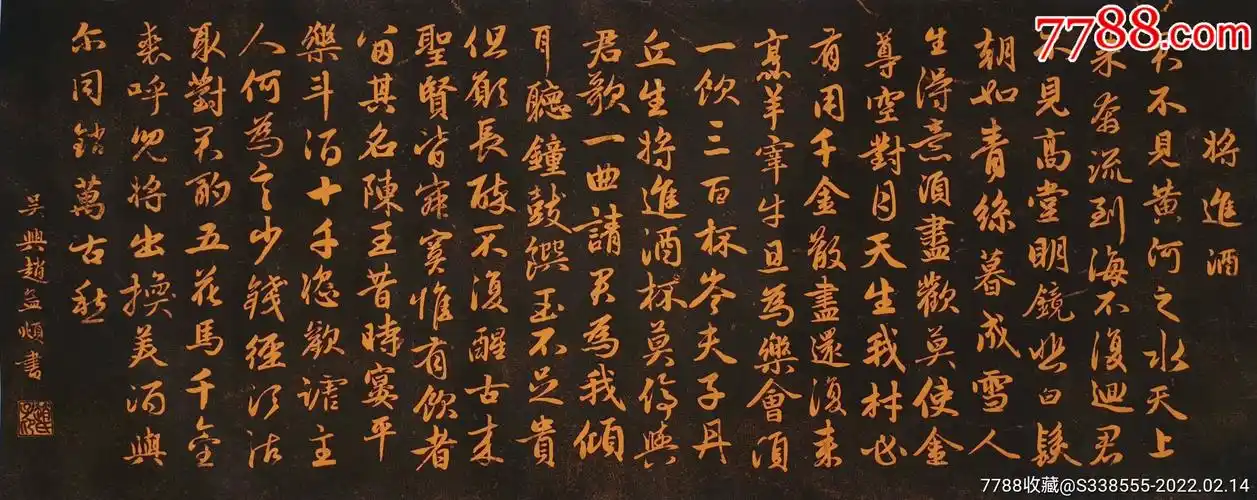 將進酒
君不見黃河之水天上
來奔流到海不復迴君
不見高堂明鏡悲白髮
朝如青絲暮成雪人
生得意須盡歡莫使金
尊空對月天生我材必
有用千金散盡還復來
烹羊宰牛且為樂會須
一飲三百杯岑夫子丹
丘生將進酒杯莫停與
君歌一曲請君為我傾
耳聽鐘鼓饌玉不足貴
但願長醉不復醒古來
聖賢皆寂寞惟有飲者
留其名陳王昔時宴平
樂斗酒十千恣歡謔主
人何為言少錢徑須沽
取對君酌五花馬千金
裘呼兒將出換美酒與
爾同銷萬古愁
吳興趙孟頫書
7788.com
7788收藏@S338555-2022.02.14